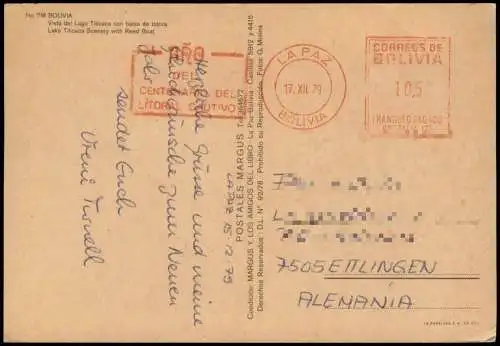 No. 718 BOLIVIA
Vista del Lago Titicaca con balsa de totora
Lake Titicaca Scenery with Reed Boat
AÑO
DEL
CENTENARIO DEL
LITORAL CAUTIVO
LA PAZ
17.XII.79
BOLIVIA
CORREOS DE
BOLIVIA
10,5
FRANQUEO PAGADO
Herzliche Grüsse und meine
Glückwünsche zum Neuen
Jahr
sendet Euch
Vreni
LA PAZ
15.12.79
POSTALES MARGUS
Conducen: MARGUS Y LOS AMIGOS DEL LIBRO - La Paz-Bolivia - Casillas 5962 y 4415
Derechos Reservados - D.L. Nº 92/78 - Prohibido su Reproducción - Fotos: G. Molina
7505 ETTLINGEN
ALEMANIA